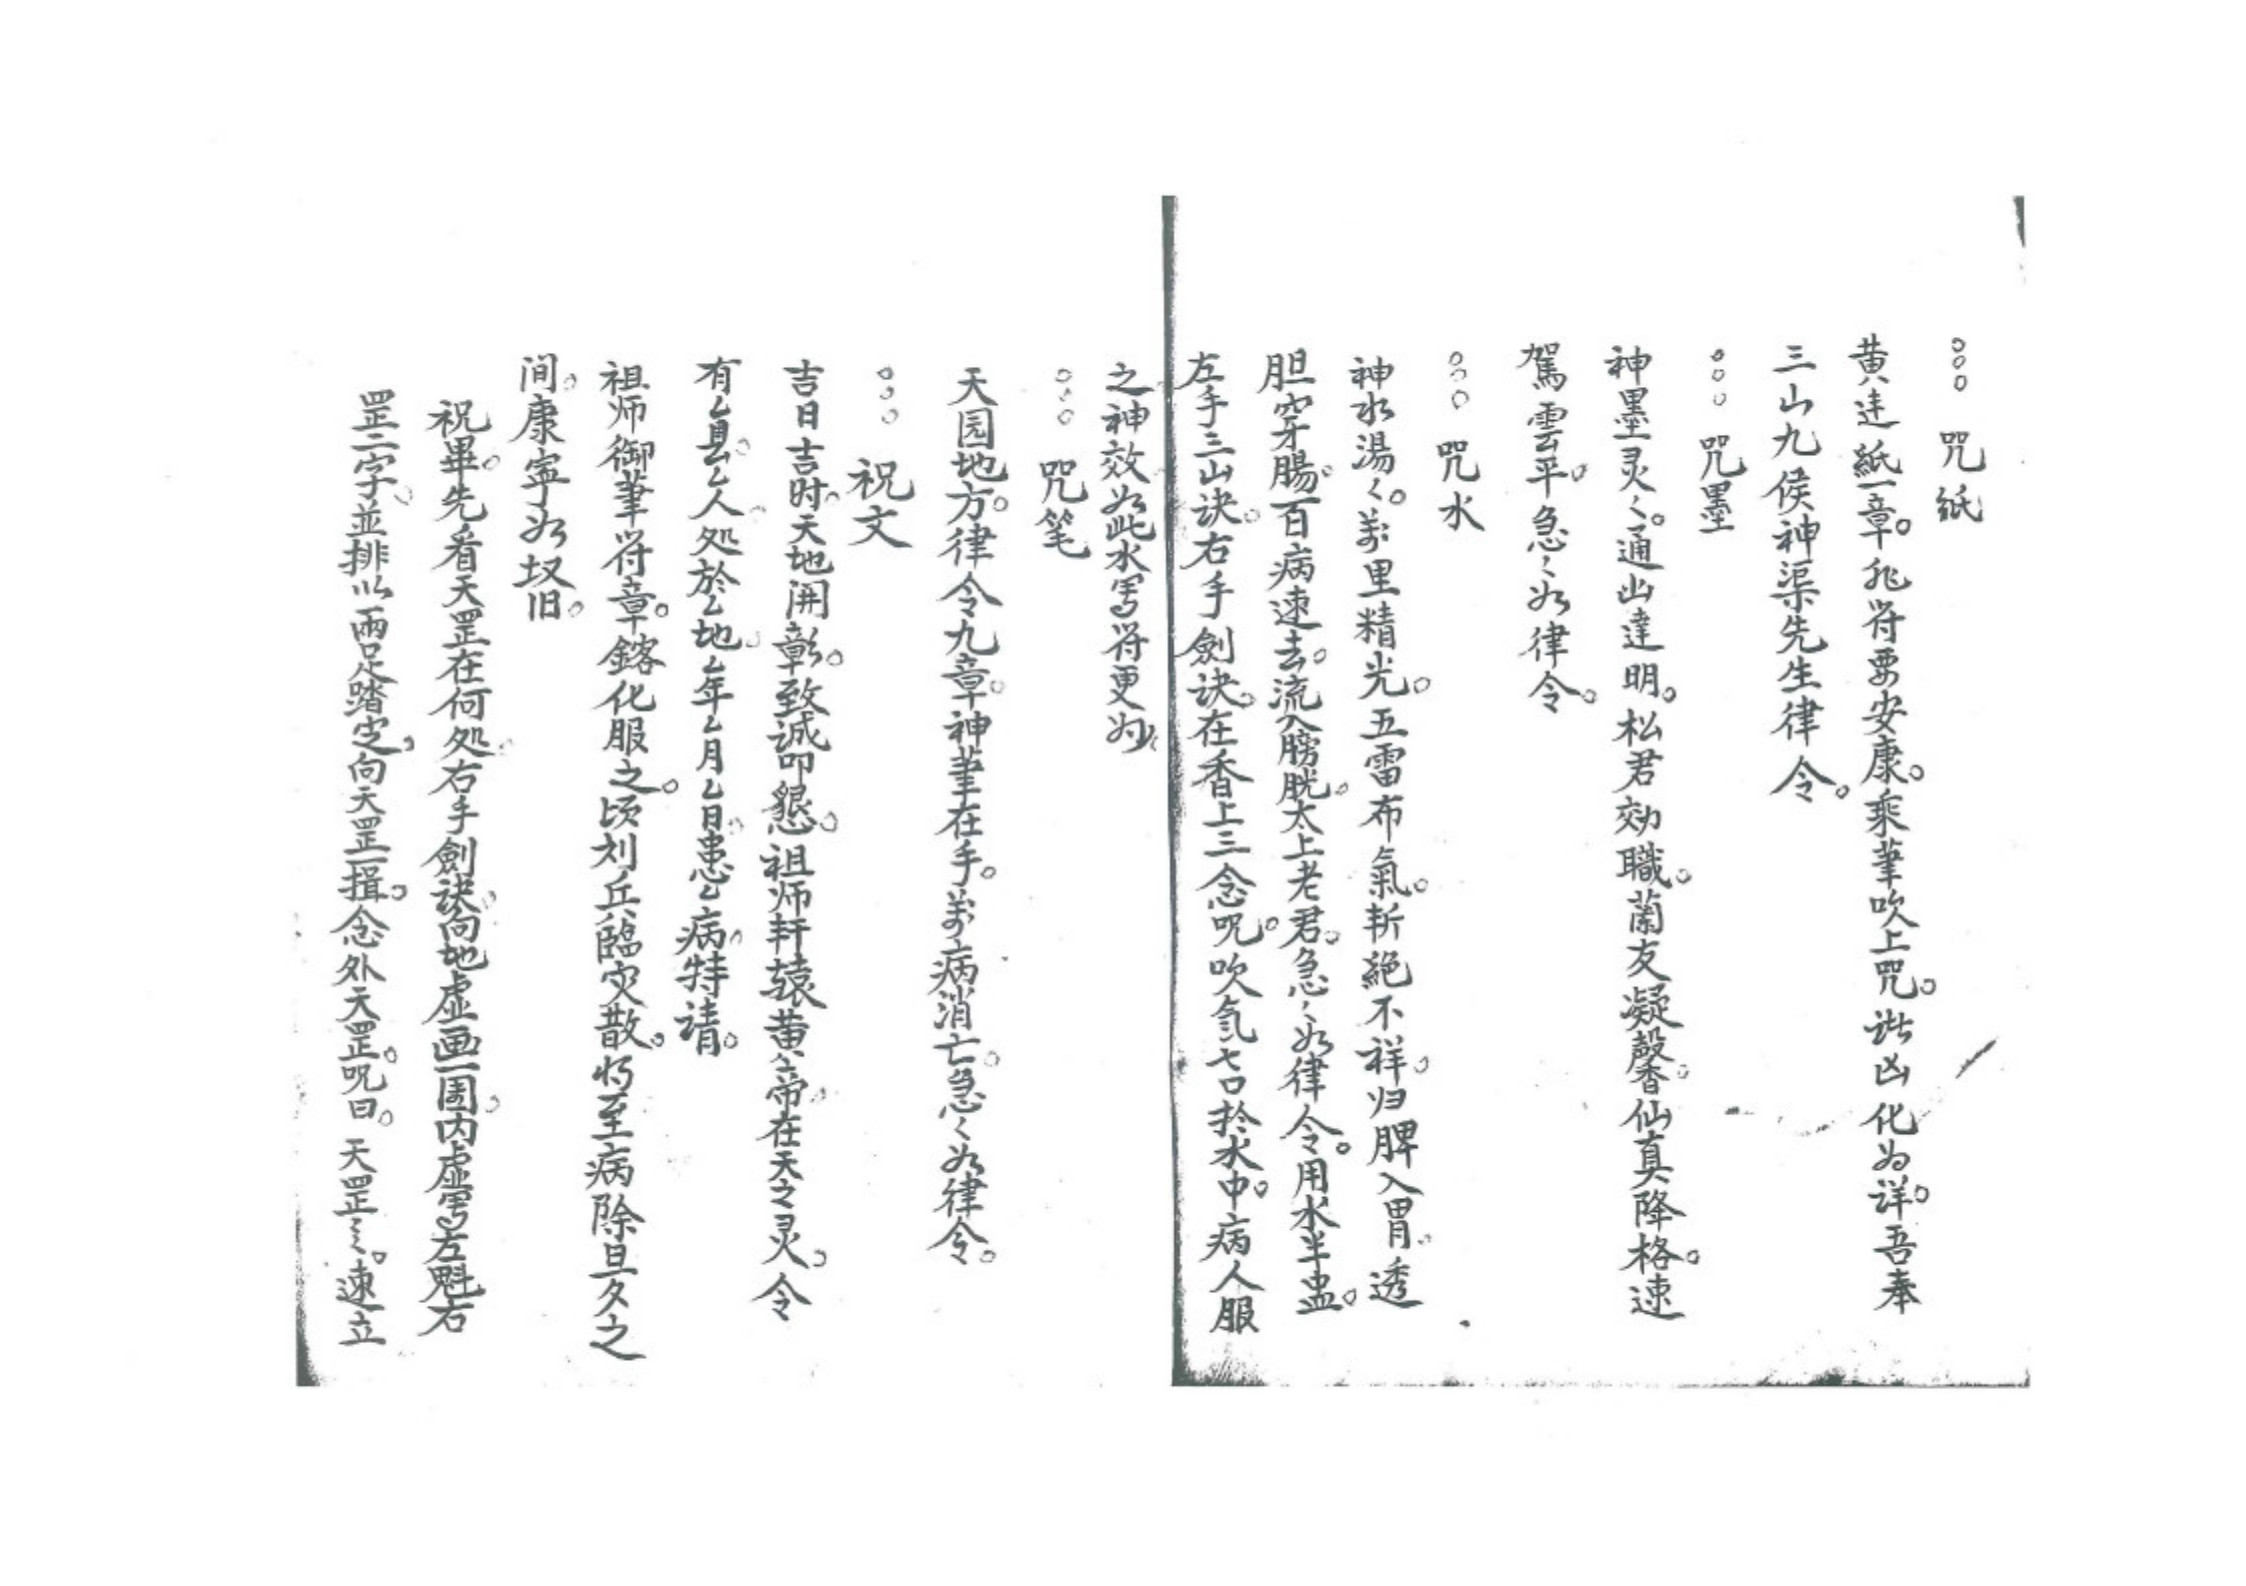 咒紙
黄建紙一章。兆符要安康。乘筆吹上咒。諸凶化为详。吾奉
三山九侯神渠先生律令。
咒墨
神墨灵〻。通幽達明。松君効職。蘭友凝馨香。仙真降格。速
駕雲平。急〻如律令。
咒水
神水湯〻。萬里精光。五雷布氣。斬絶不祥。归脾入胃。透
胆穿腸。百病速去。流入膀胱。太上老君。急〻如律令。用水半盅。
左手三山诀。右手劍诀。在香上三念呪。吹氣七口扵水中。病人服
之神效。如此水寫符更为
咒笔
天园地方。律令九章。神筆在手。萬病消亡。急〻如律令。
祝文
吉日吉时。天地開彰。致誠叩懇。祖师軒轅黄帝。在天之灵。令
有厶县。厶人处於厶地。厶年厶月厶日患厶病。特请。
祖师御筆符章。鎔化服之。顷刻丘臨灾散。将至病除旦夕之
间。康寧如故旧。
祝畢。先看天罡在何处。右手劍诀。向地虚画一圍。内虚寫左魁右
罡二字。並排以兩足踏定，向天罡一揖。念外天罡。呪曰。天罡〻。速立